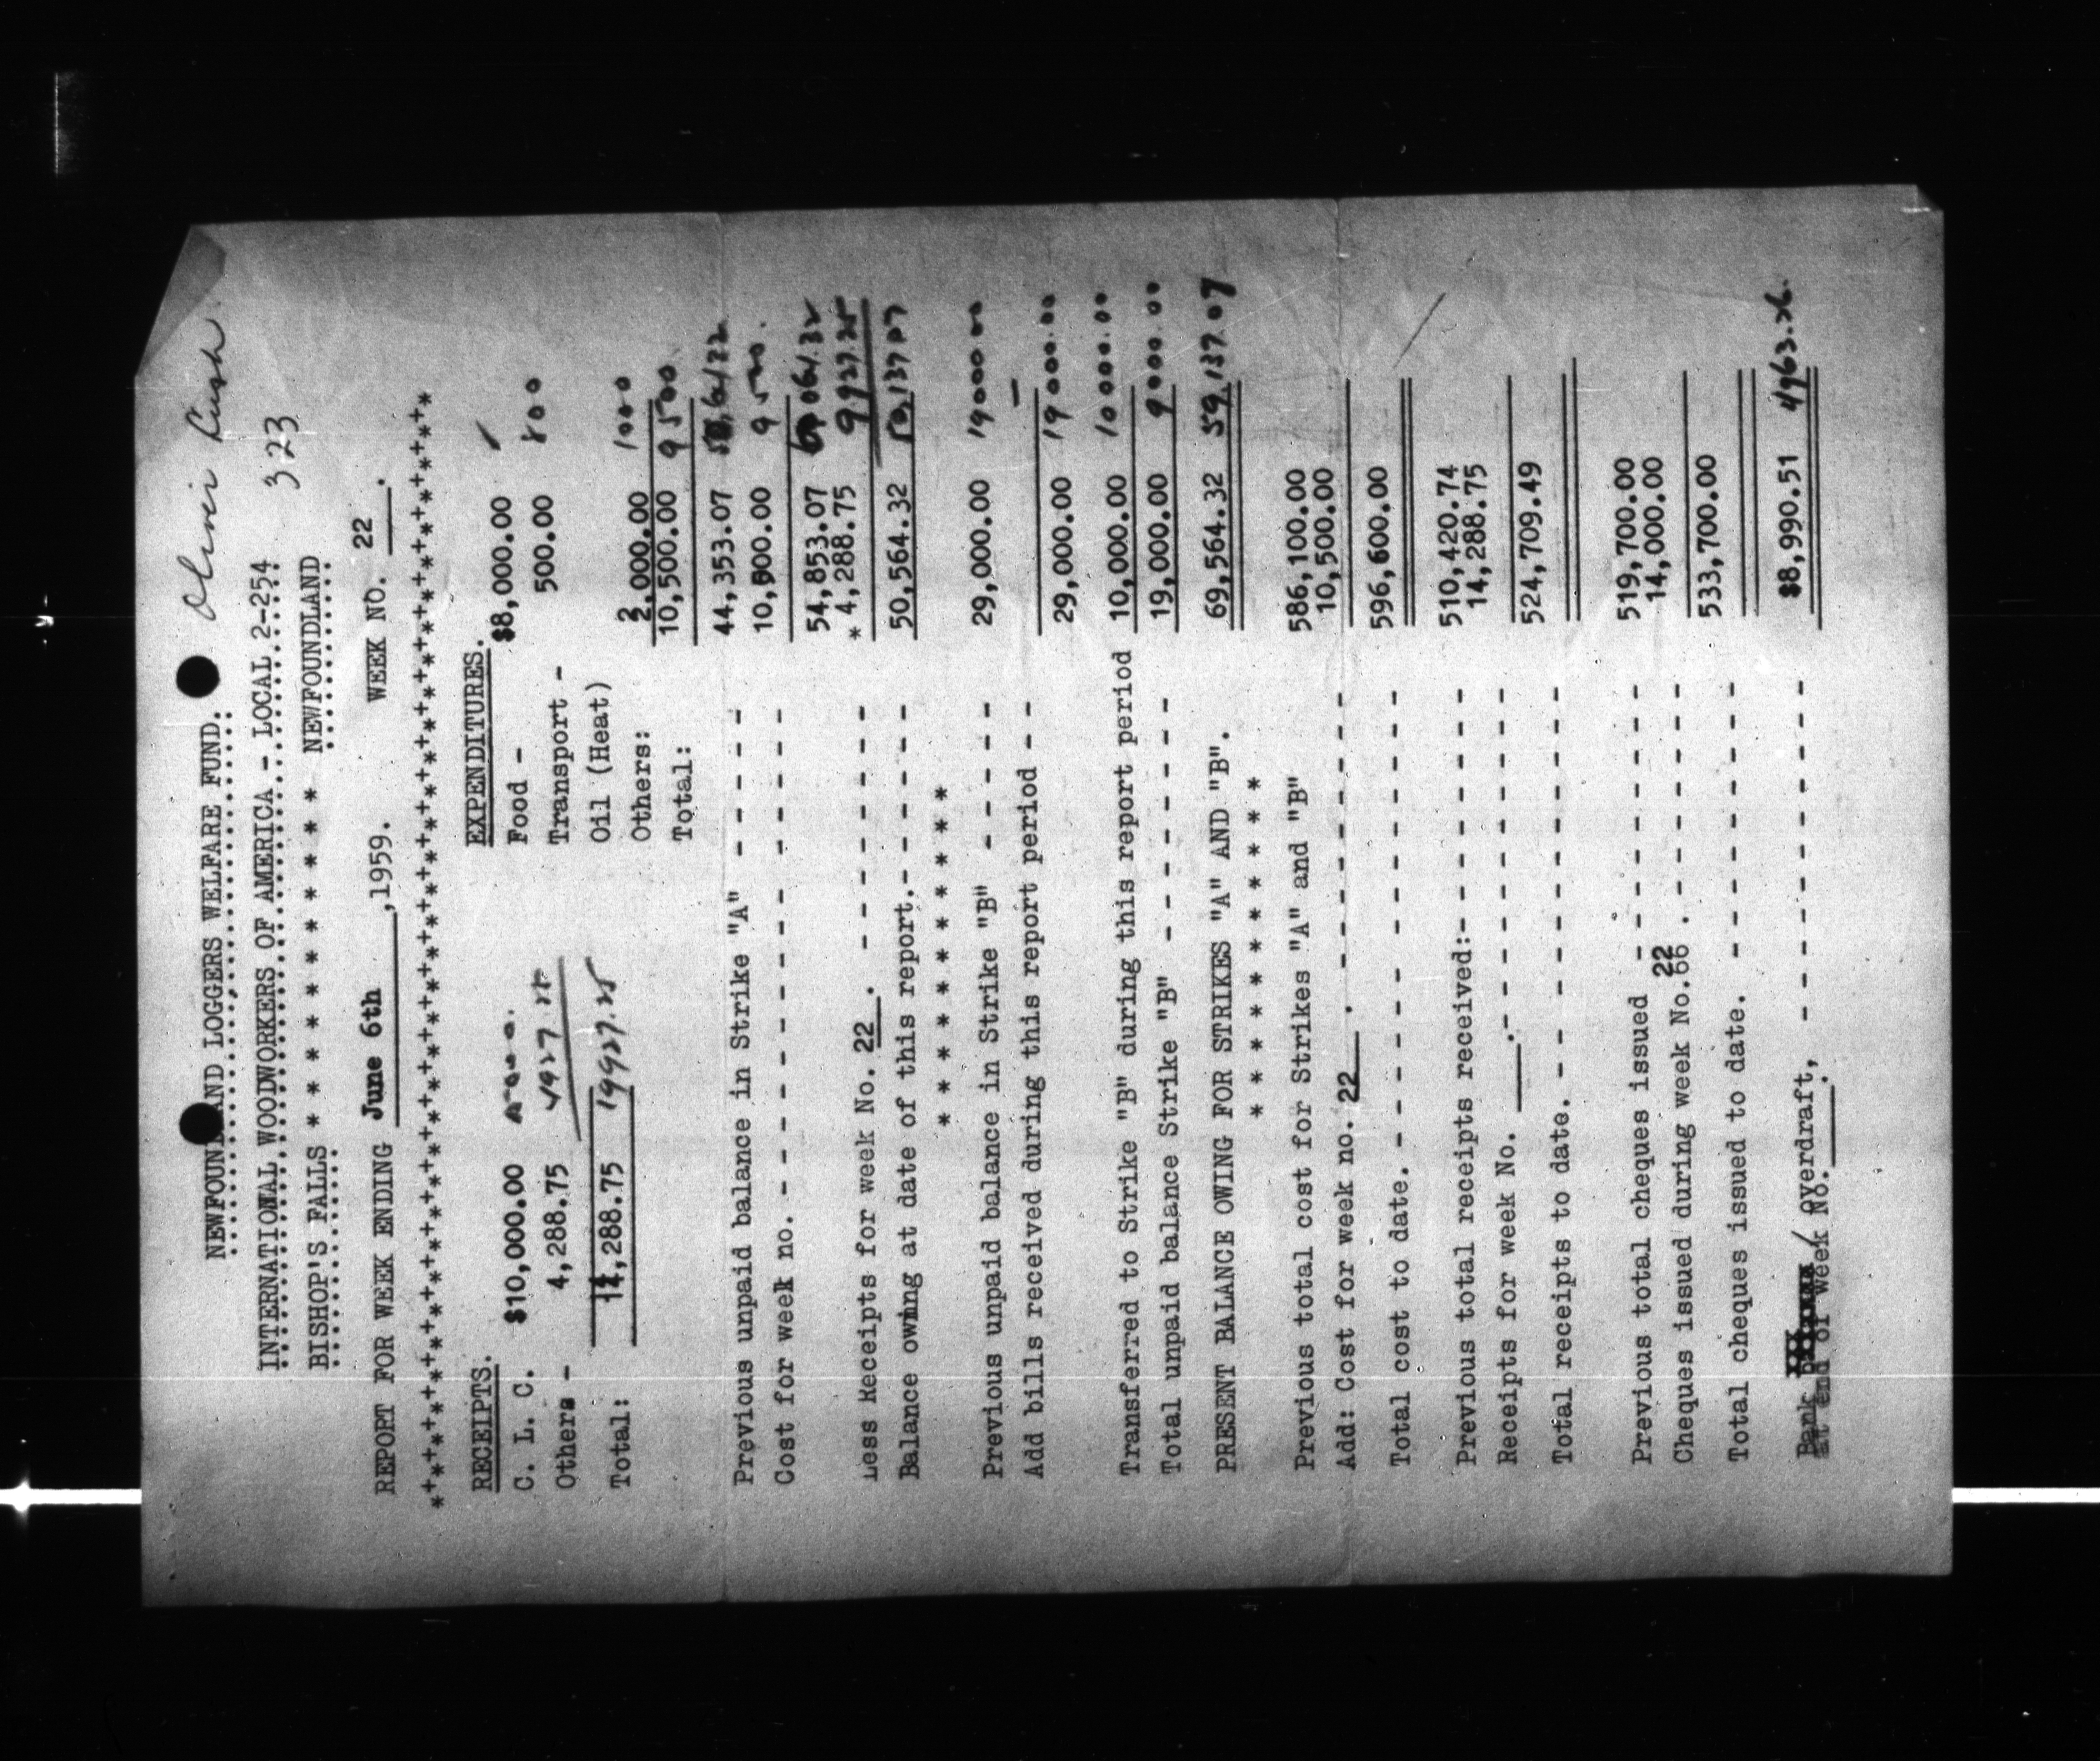 323
NEWFOUNDLAND LOGGERS WELFARE FUND.
INTERNATIONAL WOODWORKERS OF AMERICA - LOCAL 2-254
BISHOP'S FALLS * * * * * * * * * * NEWFOUNDLAND
REPORT FOR WEEK ENDING June 6th ,1959. WEEK NO. 22 .
*+*+*+*+*+*+*+*+*+*+*+*+*+*+*+*+*+*+*+*+*+*+*+*+*+*
RECEIPTS. EXPENDITURES.
C. L. C. $10,000.00 Food - $8,000.00
Others - 4,288.75 Transport - 500.00 500
Oil (Heat)
Total: 14,288.75 19927.25 Others: 2,000.00 1000
Total: 10,500.00 9500
Previous unpaid balance in Strike "A" - - - - - 44,353.07
Cost for week no. - - - - - - - - - - - - 10,500.00 9500.
54,853.07
Less Receipts for week No. 22 . - - - - - - * 4,288.75 9927.25
Balance owing at date of this report.- - - - - - 50,564.32 50,137 07
* * * * * * * * * * *
Previous unpaid balance in Strike "B" - - - - - 29,000.00 19000.00
Add bills received during this report period - - —
29,000.00 19000.00
Transferred to Strike "B" during this report period 10,000.00 10000.00
Total unpaid balance Strike "B" - - - - - - - 19,000.00 9000.00
PRESENT BALANCE OWING FOR STRIKES "A" AND "B". 69,564.32 59,137.07
* * * * * * * * * * *
Previous total cost for Strikes "A" and "B" 586,100.00
Add: Cost for week no. 22 . - - - - - - - - 10,500.00
Total cost to date. - - - - - - - - - - - - 596,600.00
Previous total receipts received:- - - - - - - 510,420.74
Receipts for week No. .- - - - - - - - - 14,288.75
Total receipts to date. - - - - - - - - - - 524,709.49
Previous total cheques issued - - - - - - - - 519,700.00
Cheques issued during week No.66 22 . - - - - - - 14,000.00
Total cheques issued to date. - - - - - - - - 533,700.00
Bank / overdraft, - - - - - - - - - - - $8,990.51 4963.26.
at end of week No. .